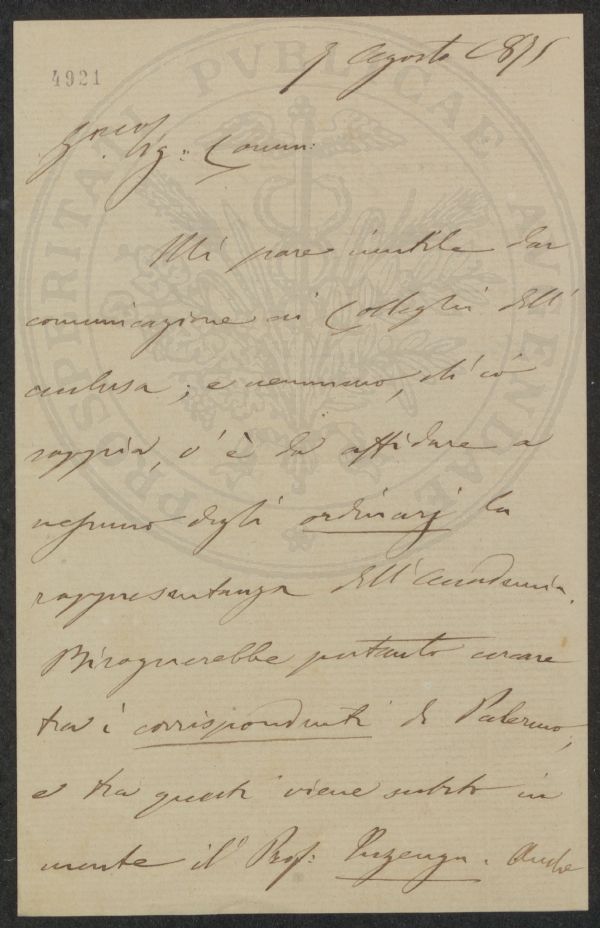 PROSPERITATI PVBLICAE AVGENDAE
4921
7 Agosto 1875
Sig: Comm:
Mi pare inutile dar
comunicazione ai Colleghi dell'
acclusa; e nemmeno, ch'io
sappia, v'è da affidare a
nessuno degli ordinarj la
rappresentanza dell'Accademia.
Bisognerebbe pertanto cercare
tra i corrispondenti di Palermo,
e tra questi viene subito in
mente il Prof: Inzenga. Anche